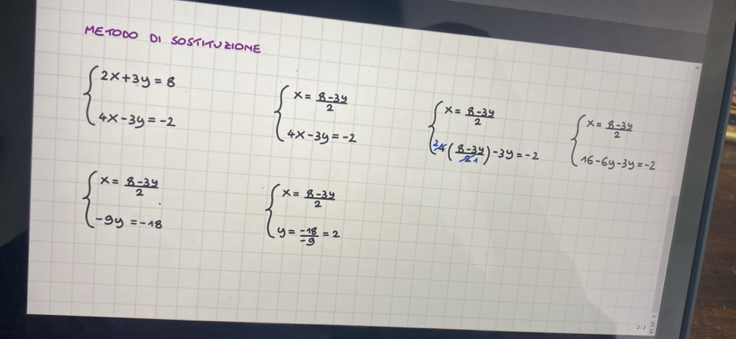 METODO DI SOSTITUZIONE
2x+3y=8
4x-3y=-2
x=8-3y/2
4x-3y=-2
x=8-3y/2
2 4(8-3y/2 1)-3y=-2
x=8-3y/2
16-6y-3y=-2
x=8-3y/2
-9y=-18
x=8-3y/2
y=-18/-9=2